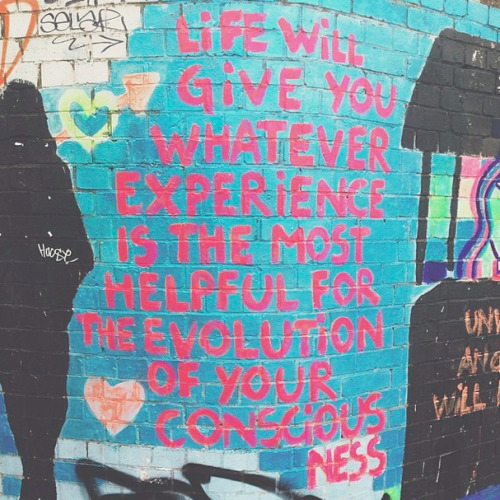 LiFE WiLL
GiVE YOU
WHATEVER
EXPERiENCE
IS THE MOST
HELPFUL FOR
THE EVOLUTiON
OF YOUR
CONSCiOUS
NESS
WiLL